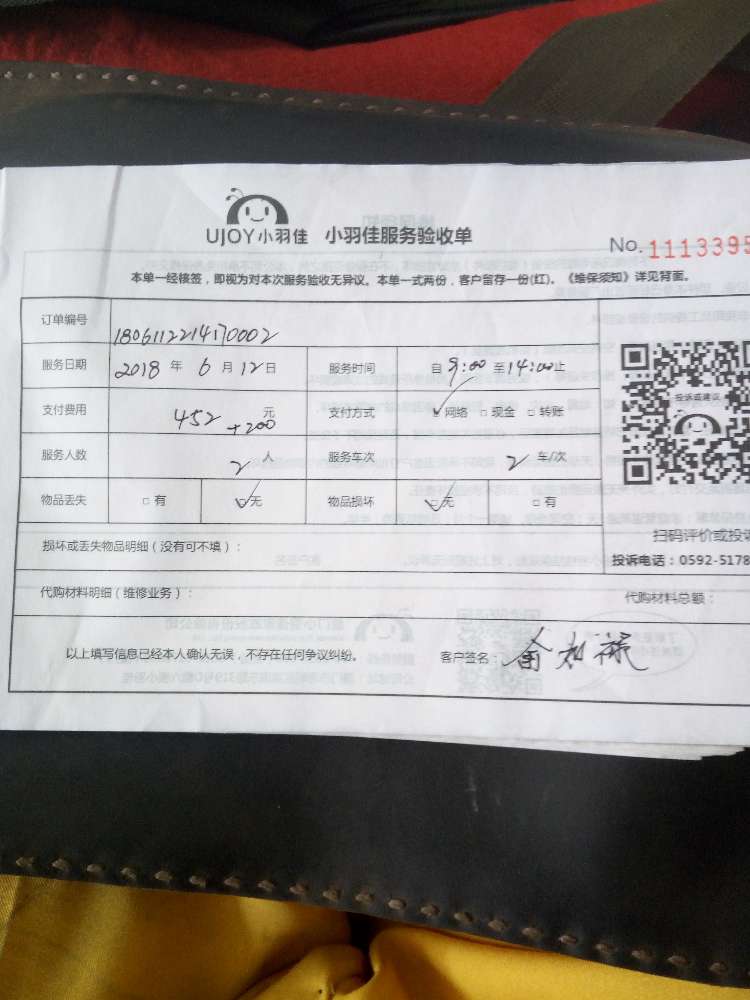 UJOY小羽佳 小羽佳服务验收单
No. 1113395
本单一经核签，即视为对本次服务验收无异议。本单一式两份，客户留存一份(红)。《维保须知》详见背面。
订单编号 1806112214170002
服务日期 2018 年 6 月 12 日 服务时间 自 9:00 至 14:00 止
支付费用 452 +200 元 支付方式 ☑网络 □现金 □转账
投诉或建议
服务人数 2 人 服务车次 2 车/次
物品丢失 □有 ☑无 物品损坏 ☑无 □有
扫码评价或投诉
损坏或丢失物品明细（没有可不填）：
投诉电话：0592-5178
代购材料明细（维修业务）：
代购材料总额：
以上填写信息已经本人确认无误，不存在任何争议纠纷。 客户签名：